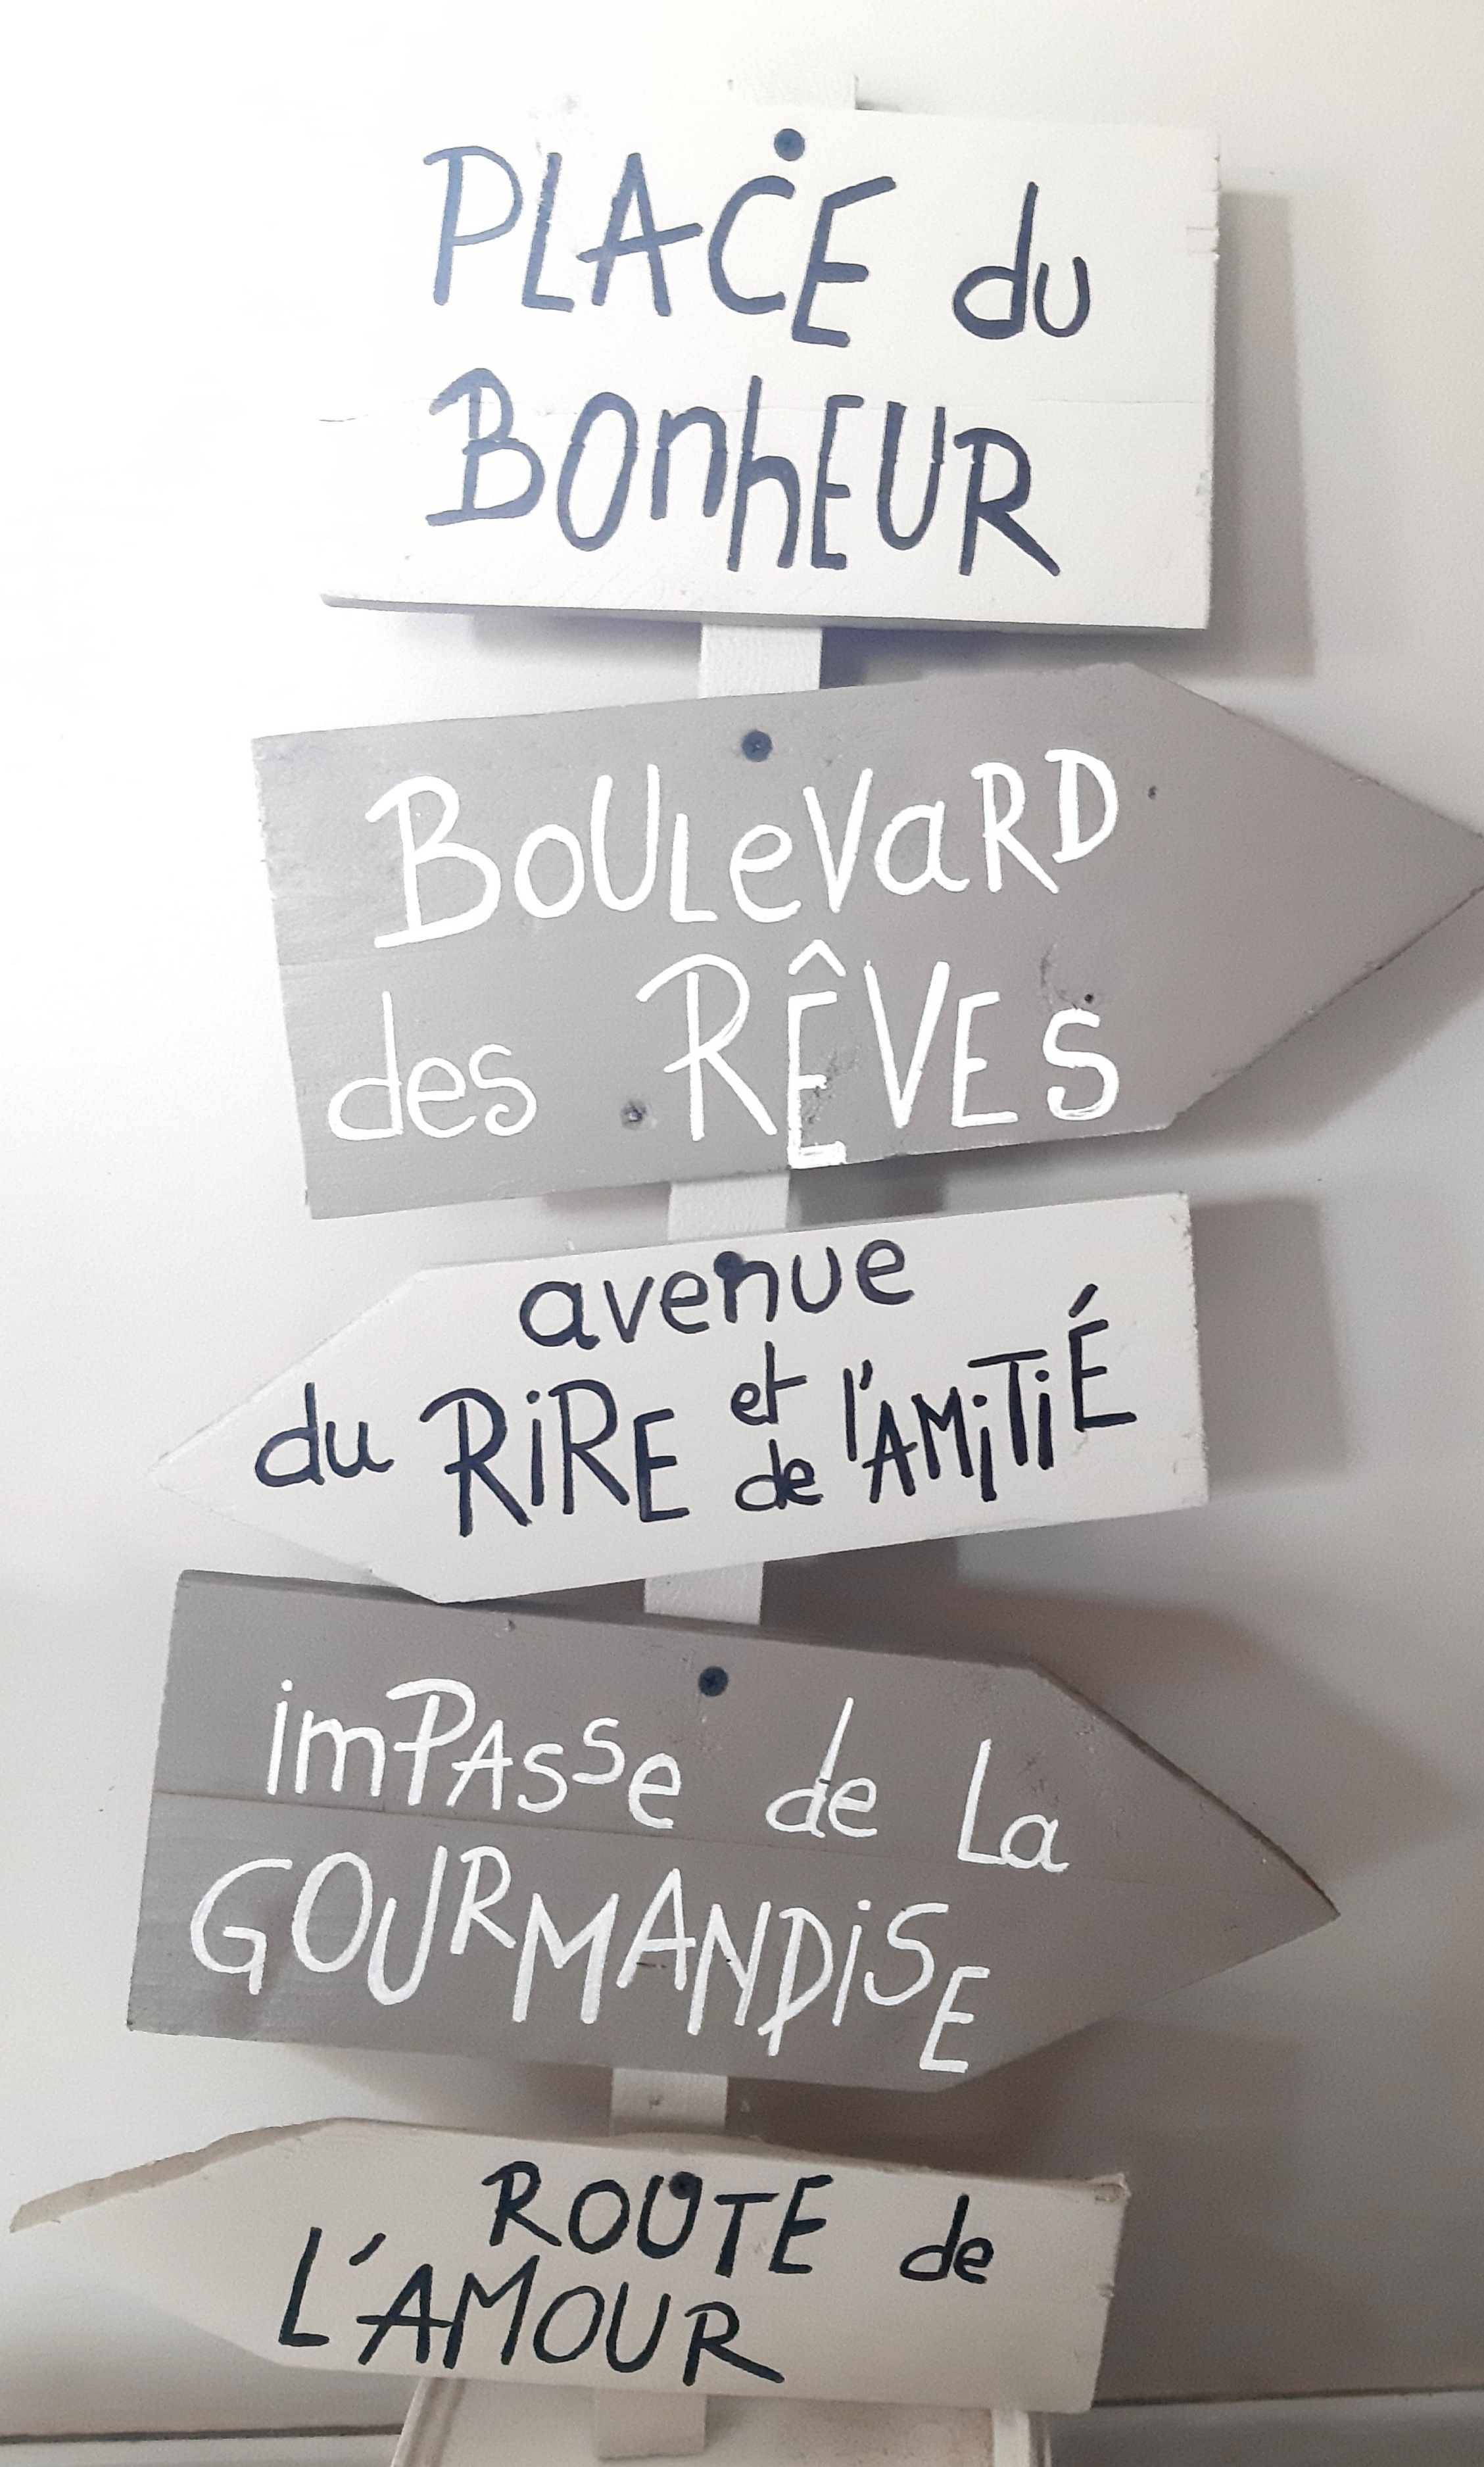 PLACE du
BOnhEUR
BOULeVaRD
des RÊVES
avenue
du RiRE et de l'AMiTiÉ
imPASse de La
GOURMANDiSE
ROUTE de
L'AMOUR